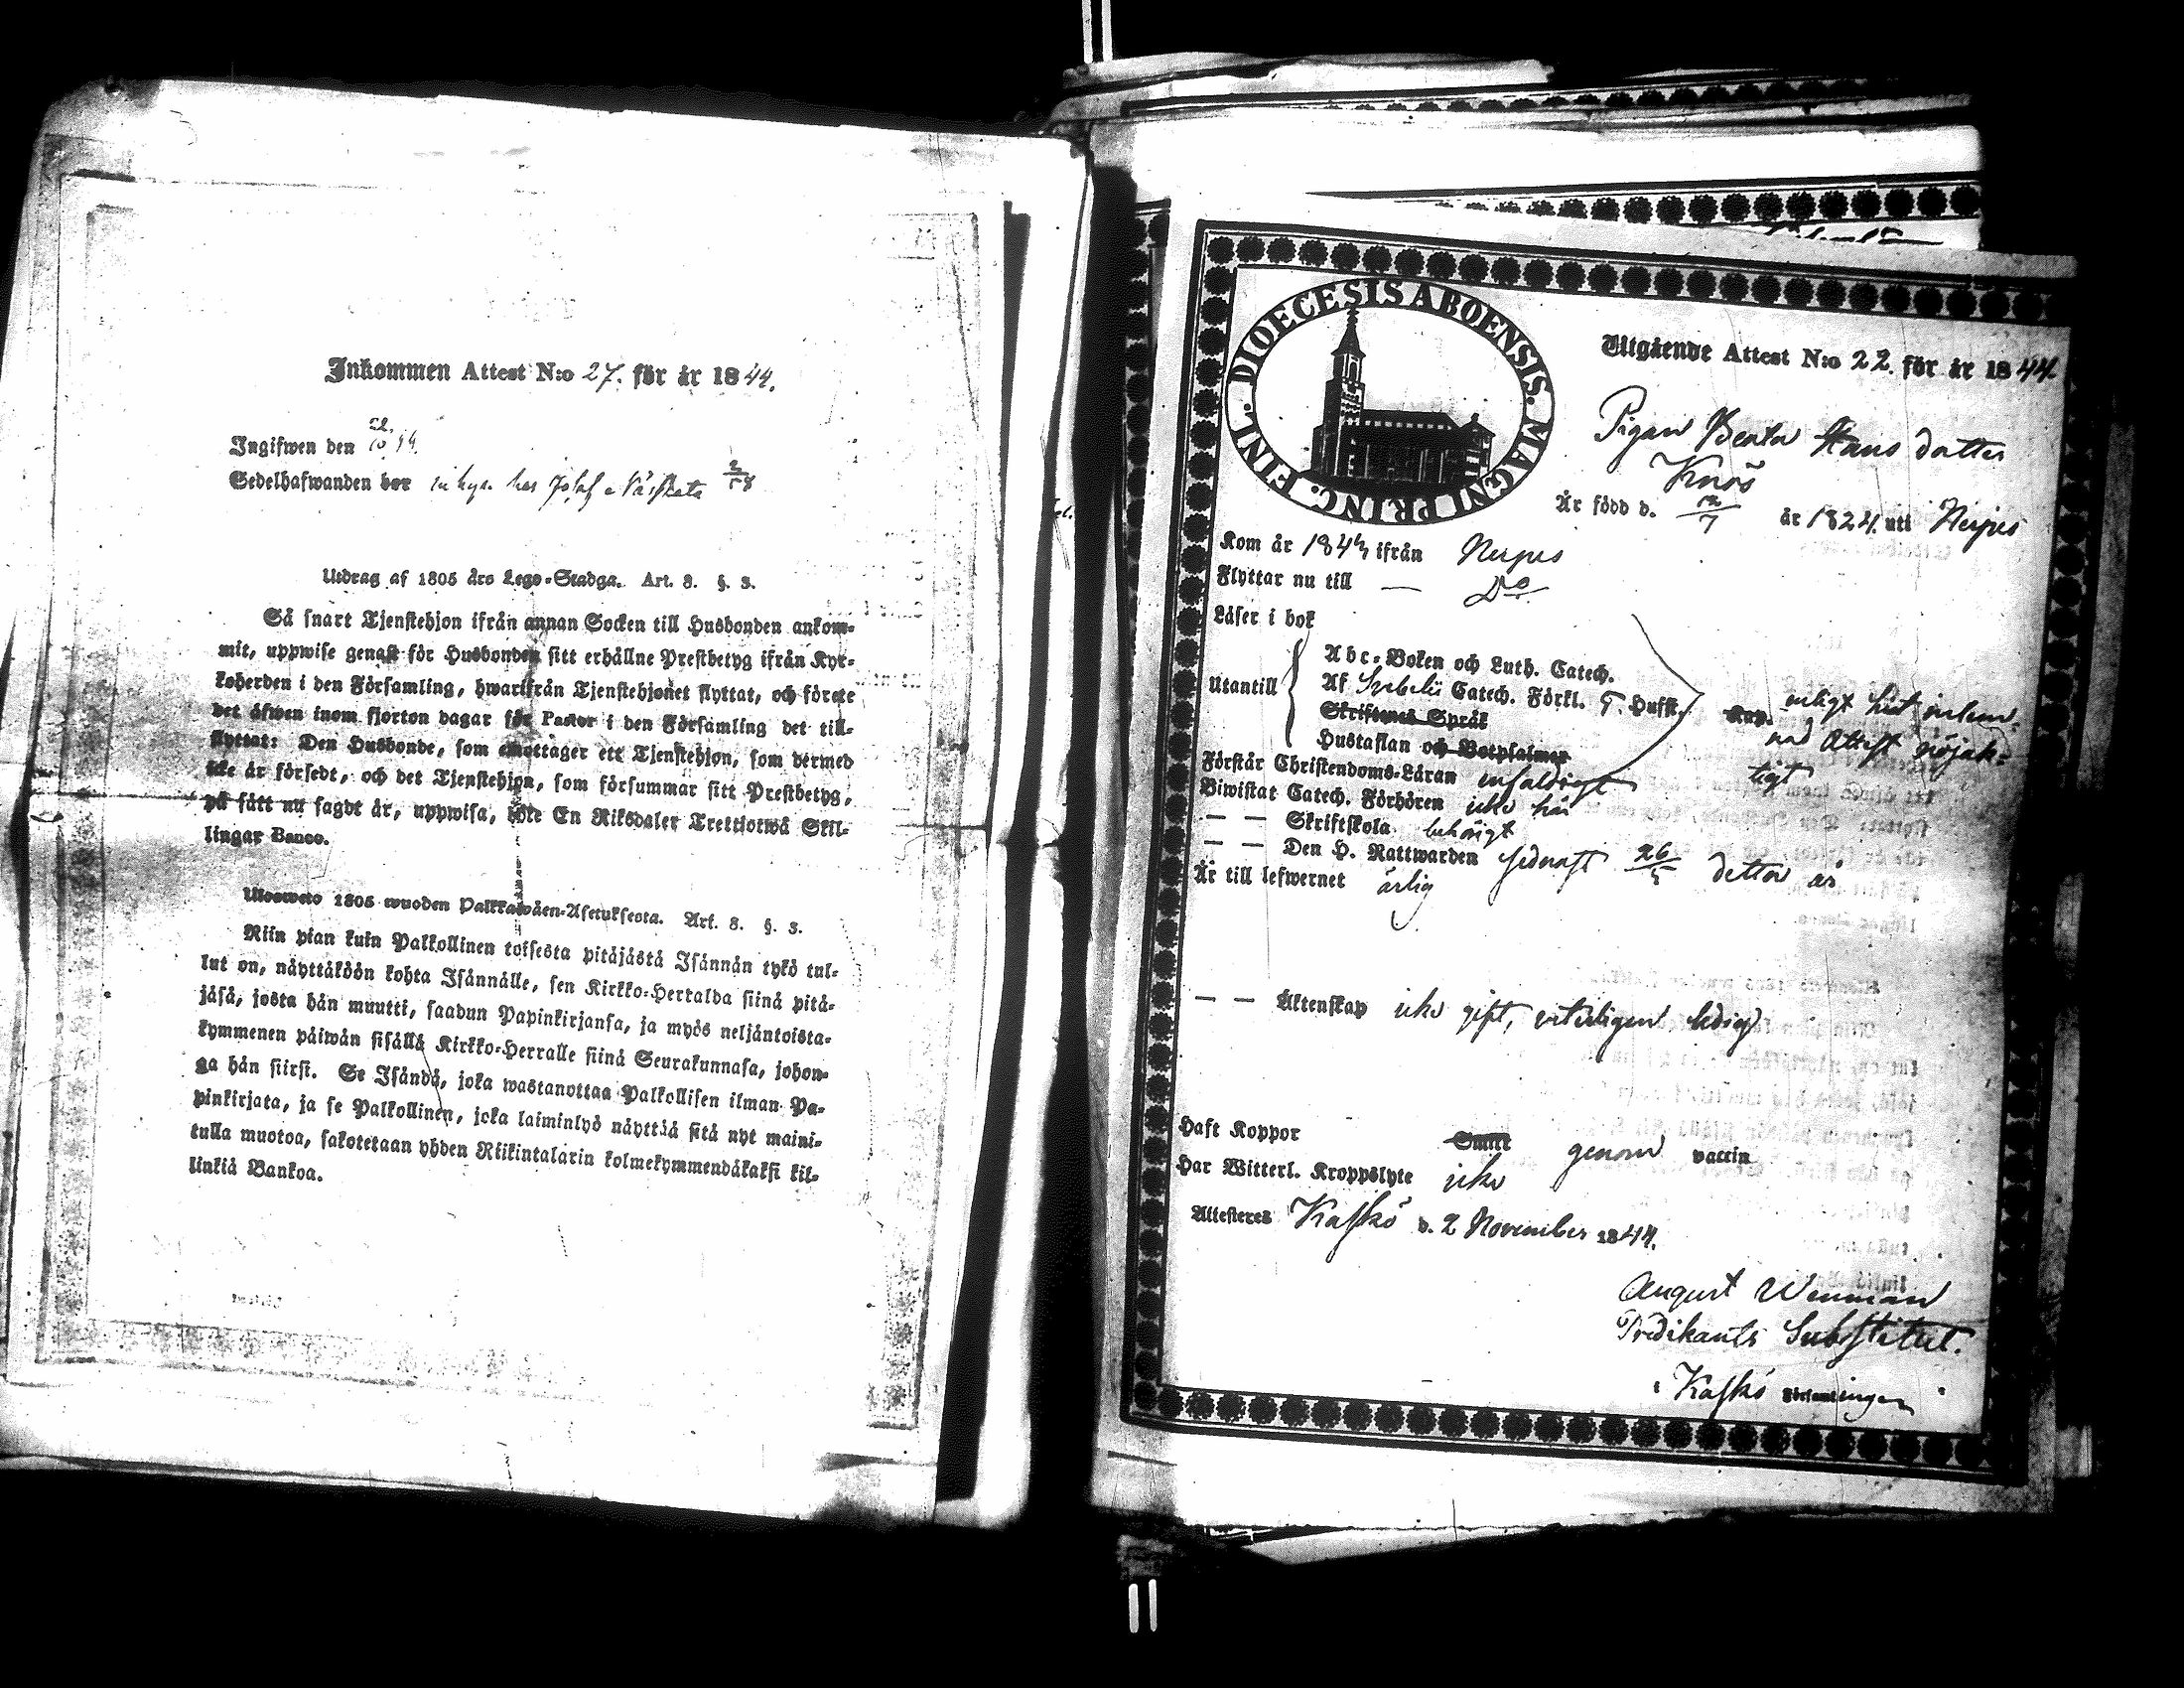 Inkommen Attest N:o 27. för år 1844.
Ingifwen den
Sedelhafwanden bor
Utdrag af 1805 års Lego-Stadga. Art. 8. §. 3.
Så snart Tjenstehjon ifrån annan Socken till Husbonden ankom-
mit, uppwise genast för Husbonden sitt erhållne Prestbetyg ifrån Kyr-
koherden i den Församling, hwarifrån Tjenstehjonet flyttat, och förete
det äfwen inom fjorton dagar för Pastor i den Församling det till-
flyttat: Den Husbonde, som emottager ett Tjenstehjon, som dermed
icke är försedt, och det Tjenstehjon, som försummar sitt Prestbetyg,
på sätt nu sagdt är, uppwisa, böte En Riksdaler Trettiotwå Skil-
lingar Banco.
Ulosweto 1805 wuoden Palkkawäen-Asetuksesta. Art. 8. §. 3.
Niin pian kuin Palkollinen toisesta pitäjästä Isännän tykö tul-
lut on, näyttäköön kohta Isännälle, sen Kirkko-Herralda siinä pitä-
jäsä, josta hän muutti, saadun Papinkirjansa, ja myös neljäntoista-
kymmenen päiwän sisällä Kirkko-Herralle siinä Seurakunnasa, johon-
ga hän siirsi. Se Isändä, joka wastanottaa Palkollisen ilman Pa-
pinkirjata, ja se Palkollinen, joka laiminlyö näyttää sitä nyt maini-
tulla muotoa, sakotetaan yhden Riikintalarin kolmekymmendäkaksi kil-
linkiä Bankoa.
DIOECESIS ABOENSIS. MAGNI PRINC. FINL.
Utgående Attest N:o 22. för år 1844.
Pigan Beata Hans dotter
Knös
Är född d. 12/7 år 1824. uti Nerpes
Kom år 1843 ifrån Nerpes
Flyttar nu till — Do
Läser i bok
Utantill
Abc-Boken och Luth. Catech.
Af Svebelii Catech. Förkl. 5. Hufst.
Kap. enligt hit inlem-
nad Attest nöjak-
tigt
Skriftenes Språk
Hustaflan och Botpsalmer
Förstår Christendoms-Läran enfaldigt
Biwistat Catech. Förhören icke här
— — Skriftskola behörigt
— — Den H. Nattwarden sednast 26/5 detta år
Är till lefwernet ärlig
— — Äktenskap icke gift, veterligen ledig
Haft Koppor Smitt genom vaccin
Har Witterl. Kroppslyte icke
Attesteres Kaskö d. 2 November 1844.
August Wenman
Predikants Substitut.
i Kaskö Församlingen